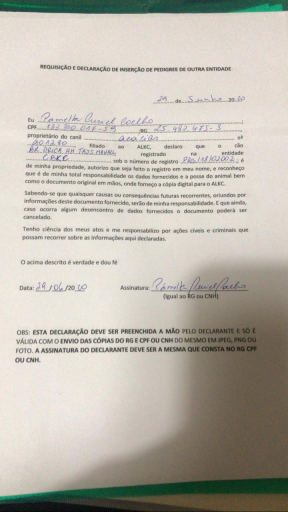 REQUISIÇÃO E DECLARAÇÃO DE INSERÇÃO DE PEDIGREE DE OUTRA ENTIDADE
29 de Junho 2020
Eu Pamella Coelho
CPF RG 25.482.485-3
proprietário do canil
filiado ao ALEC, declaro que o cão
registrado na entidade
CBKC sob o número de registro é
de minha propriedade, autorizo que seja feito o registro em meu nome, e reconheço
que é de minha total responsabilidade os dados fornecidos e a posse do animal bem
como o documento original em mãos, onde forneço a cópia digital para o ALEC.
Sabendo-se que quaisquer causas ou consequências futuras recorrentes, oriundos por
informações deste documento fornecido, serão de minha responsabilidade. E que ainda,
caso ocorra algum desencontro de dados fornecidos o documento poderá ser
cancelado.
Tenho ciência dos meus atos e me responsabilizo por ações civeis e criminais que
possam recorrer as informações aqui declaradas.
O acima descrito é verdade e dou fé
Data: 29/06/2020 Assinatura: Pamella Coelho
(Igual ao RG ou CNH)
OBS: ESTA DECLARAÇÃO DEVE SER PREENCHIDA A MÃO PELO DECLARANTE E SÓ É
VÁLIDA COM O ENVIO DAS CÓPIAS DO RG E CPF OU CNH DO MESMO EM JPEG, PNG OU
FOTO. A ASSINATURA DO DECLARANTE DEVE SER A MESMA QUE CONSTA NO RG CPF
OU CNH.